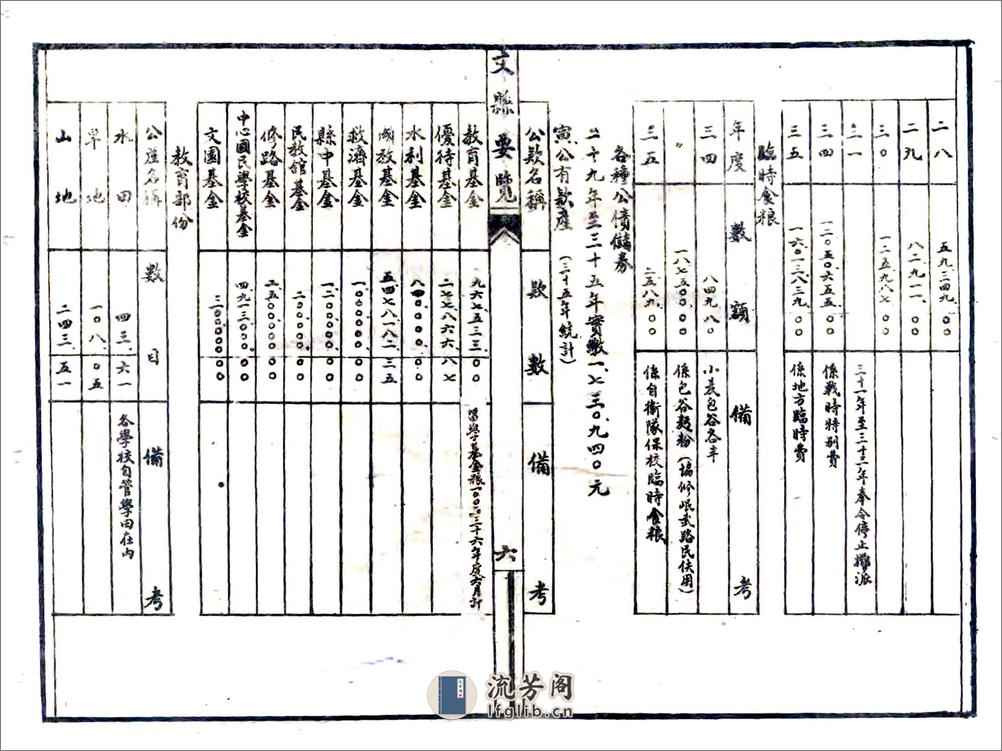 二八 五九.三四九.〇〇
二九 八二九一一.〇〇
三〇 一二五.九八七.〇〇
三一 三十一年至三十三年奉令停止攤派
三四 一二〇.五〇六.五五.〇〇 係戰時特別費
三五 一六〇一三八三九.〇〇 係地方臨時費
臨時食粮
年度 數額 備考
三四 八四九.八〇 小麦包谷各半
一八七五〇〇.〇〇 係包谷麵粉(協修岷武路民伕用)
三五 二五八九.〇〇 係自衛隊保校臨時食粮
各種公債儲券
二十九年至三十五年實繳一、七三〇、九四〇元
寅公有款產(三十五年統計)
文縣要覽
六
公款名稱 款數 備考
教育基金 九六七五三三一〇〇
優待基金 二七七八六六八七
水利基金 八四〇〇〇.〇〇
五四七八一八二.三五
救濟基金 一〇〇〇〇〇〇.〇〇
縣中基金 一二〇〇〇〇〇.〇〇
民教舘基金 二〇〇〇〇〇.〇〇
修路基金 二五〇〇〇〇.〇〇
中心國民學校基金 四九一三〇〇〇.〇〇
文園基金 三一〇〇〇〇〇.〇〇
教育部份
公產名稱 數目 備考
水田 四三.六一 各學校自管學田在內
旱地 一〇八.〇五
山地 二四三.五一
流芳阁
lfglib.cn